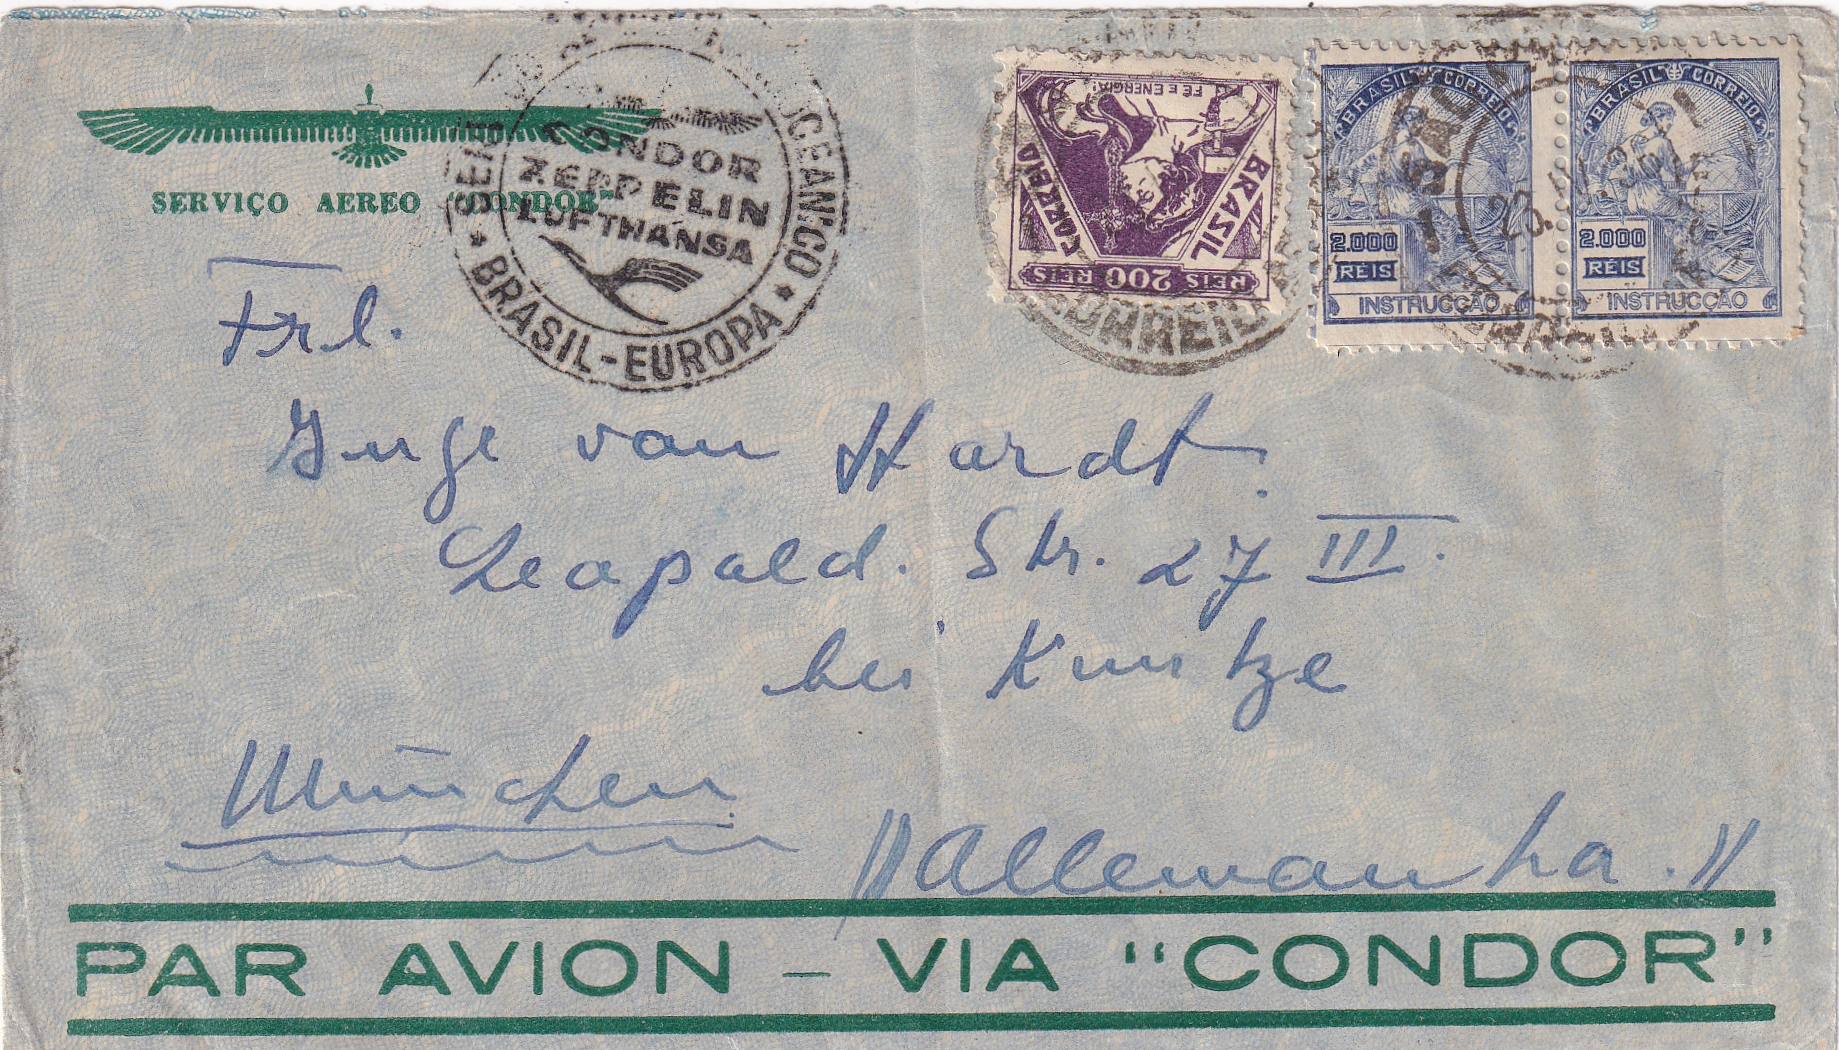 SERVIÇO AEREO "CONDOR"
OCEANICO
CONDOR
ZEPPELIN
LUFTHANSA
* BRASIL-EUROPA *
FÉ E ENERGIA!
CORREIO
BRASIL
REIS 200 REIS
BRASIL CORREIO
2.000
RÉIS
INSTRUCÇÃO
BRASIL CORREIO
2.000
RÉIS
INSTRUCÇÃO
CORREIO
Frl.
Inge van Hardt.
Leopold. Str. 27 III.
bei Kuntze
München
//Allemanha.//
PAR AVION – VIA "CONDOR"